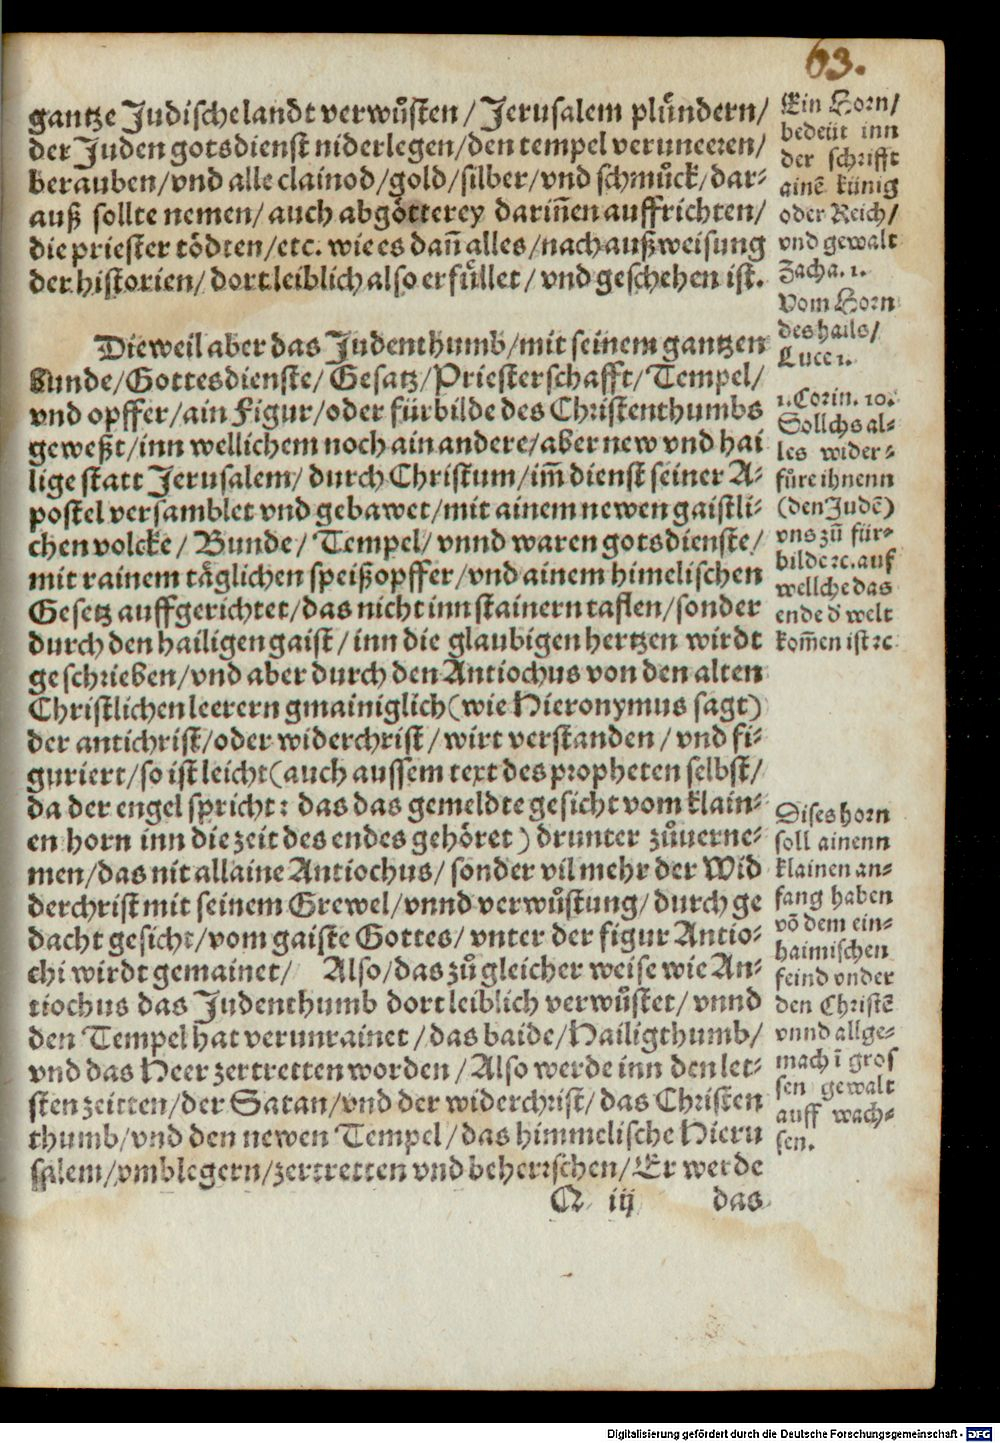 63.
gantze Judische landt verwůsten / Jerusalem plündern/
der Juden gotsdienst niderlegen/den tempel veruneeren/
berauben/vnd alle clainod/gold/silber/vnd schmůck/dar-
auß sollte nemen/ auch abgötterey dariñen auffrichten/
die priester tödten/etc. wie es dañ alles/nach außweisung
der historien/ dort leiblich also erfüllet/ vnd geschehen ist.
Dieweil aber das Judenthumb/mit seinem gantzen
Bunde/Gottesdienste/ Gesatz/Priesterschafft/Tempel/
vnd opffer/ain Figur/oder fürbilde des Christenthumbs
geweßt/inn wellichem noch ain andere/aber new vnd hai
lige statt Jerusalem/ durch Christum/im̃ dienst seiner A-
postel versamblet vnd gebawet/mit ainem newen gaistli-
chen volcke/ Bunde/ Tempel/ vnnd waren gotsdienste/
mit rainem täglichen speißopffer/vnd ainem himelischen
Gesetz auffgerichtet/das nicht inn stainern taflen/sonder
durch den hailigen gaist/inn die glaubigen hertzen wirdt
geschrieben/vnd aber durch den Antiochus von den alten
Christlichen leerern gmainiglich(wie Hieronymus sagt)
der antichrist/oder widerchrist/wirt verstanden / vnd fi-
guriert/so ist leicht(auch aussem text des propheten selbst/
da der engel spricht: das das gemeldte gesicht vom klain-
en horn inn die zeit des endes gehöret) drunter zůuerne-
men/das nit allaine Antiochus/ sonder vil mehr der Wid
derchrist mit seinem Grewel/vnnd verwůstung/durch ge
dacht gesicht/vom gaiste Gottes/ vnter der figur Antio-
chi wirdt gemainet/ Also/das zů gleicher weise wie An-
tiochus das Judenthumb dort leiblich verwůstet/ vnnd
den Tempel hat verunrainet/das baide/Hailigthumb/
vnd das Heer zertretten worden/Also werde inn den let-
sten zeitten/der Satan/vnd der widerchrist/das Christen
thumb/vnd den newen Tempel/das himmelische Hieru
salem/vmblegern/zertretten vnd beherrschen/Er werde
Q iij das
Ein Horn/
bedeüt inn
der schrifft
ainẽ künig
oder Reich/
vnd gewalt
Zacha. 1.
Vom Horn
des hails/
Luce 1.
1. Corin. 10.
Sollchs al-
les wider-
fůre ihnenn
(den Judẽ)
vns zů für-
bilde ꝛc. auf
wellche das
ende d̃ welt
kom̃en ist ꝛc
Dises horn
soll ainenn
klainen an-
fang haben
võ dem ein-
haimischen
feind vnder
den Christẽ
vnnd allge-
mach ĩ gros
sen gewalt
auff wach-
sen.
Digitalisierung gefördert durch die Deutsche Forschungsgemeinschaft - DFG